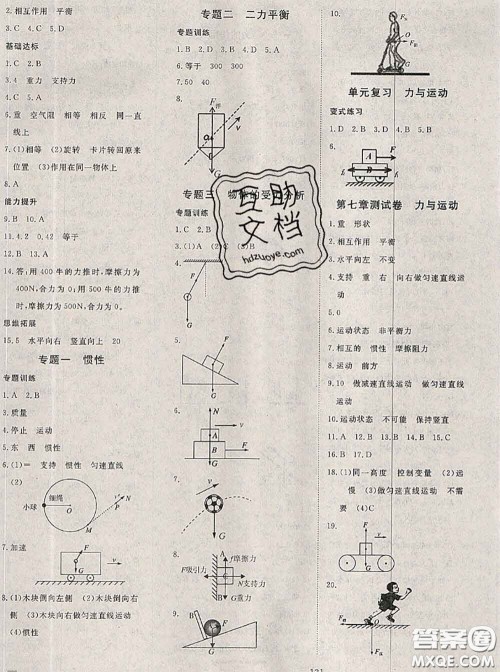 2. 相互作用 平衡
基础达标
1. C 2. C
3. 4 重力 支持力
4. C 5. A
6. 重 空气阻 相等 相反 同一直
线上
7. (1)相等 (2)旋转 卡片转回原来
位置 (3)作用在同一物体上
8. C 9. C 10. C
能力提升
11. A 12. B 13. A
14. 答:用400牛的力推时,摩擦力为
400N,合力为0。用500牛的力推
时,摩擦力为500N,合力为0。
思维拓展
15. 5 水平向右 竖直向上 20
专题一 惯性
专题训练
1. A 2. B
3. 质量
4. 停止 运动
5. 东 西 惯性
6. (1)= 支持 惯性 匀速直线
(2)
小球
细绳
O
M
v
7. 加速
F
G
v
8. (1)木块倒向左侧 (2)木块倒向右
侧 (3)木块向右做匀速直线运动
(4)惯性
专题二 二力平衡
专题训练
1. B 2. D 3. A 4. D 5. A
6. 等于 300 300
7. 50 40
8.
F浮
v
G
专题三 物体的受力分析
专题训练
1. C 2. B 3.
4.
F
G
5.
F
G
6.
N
A
B
G
7.
v
G
8.
f摩擦力
F吸引力
N支持力
G重力
9.
G
10.
F
O
G
单元复习 力与运动
变式练习
1. D 2. B 3. D 4. D 5. C
6.
A
F
B
第七章测试卷 力与运动
1. 重 形状
2. 相互作用 平衡
3. 水平向左 不变
4. 支持 重 右 向右做匀速直线运
动
5. 0
6. 运动状态 非平衡力
7. 相互的 惯性 摩擦阻力
8. 运动 前方
9. 10 做减速直线运动 做匀速直线
运动
10. 运动状态 不可能 保持竖直
11. A 12. B 13. B 14. C 15. B
16. A 17. C
18. (1)同一高度 控制变量 (2)远
慢 (3)做匀速直线运动 不需
要 (4)C
19.
F
G
20.
F
G
互助
文档
hdzuoye.com
答案圈
MXQE.COM